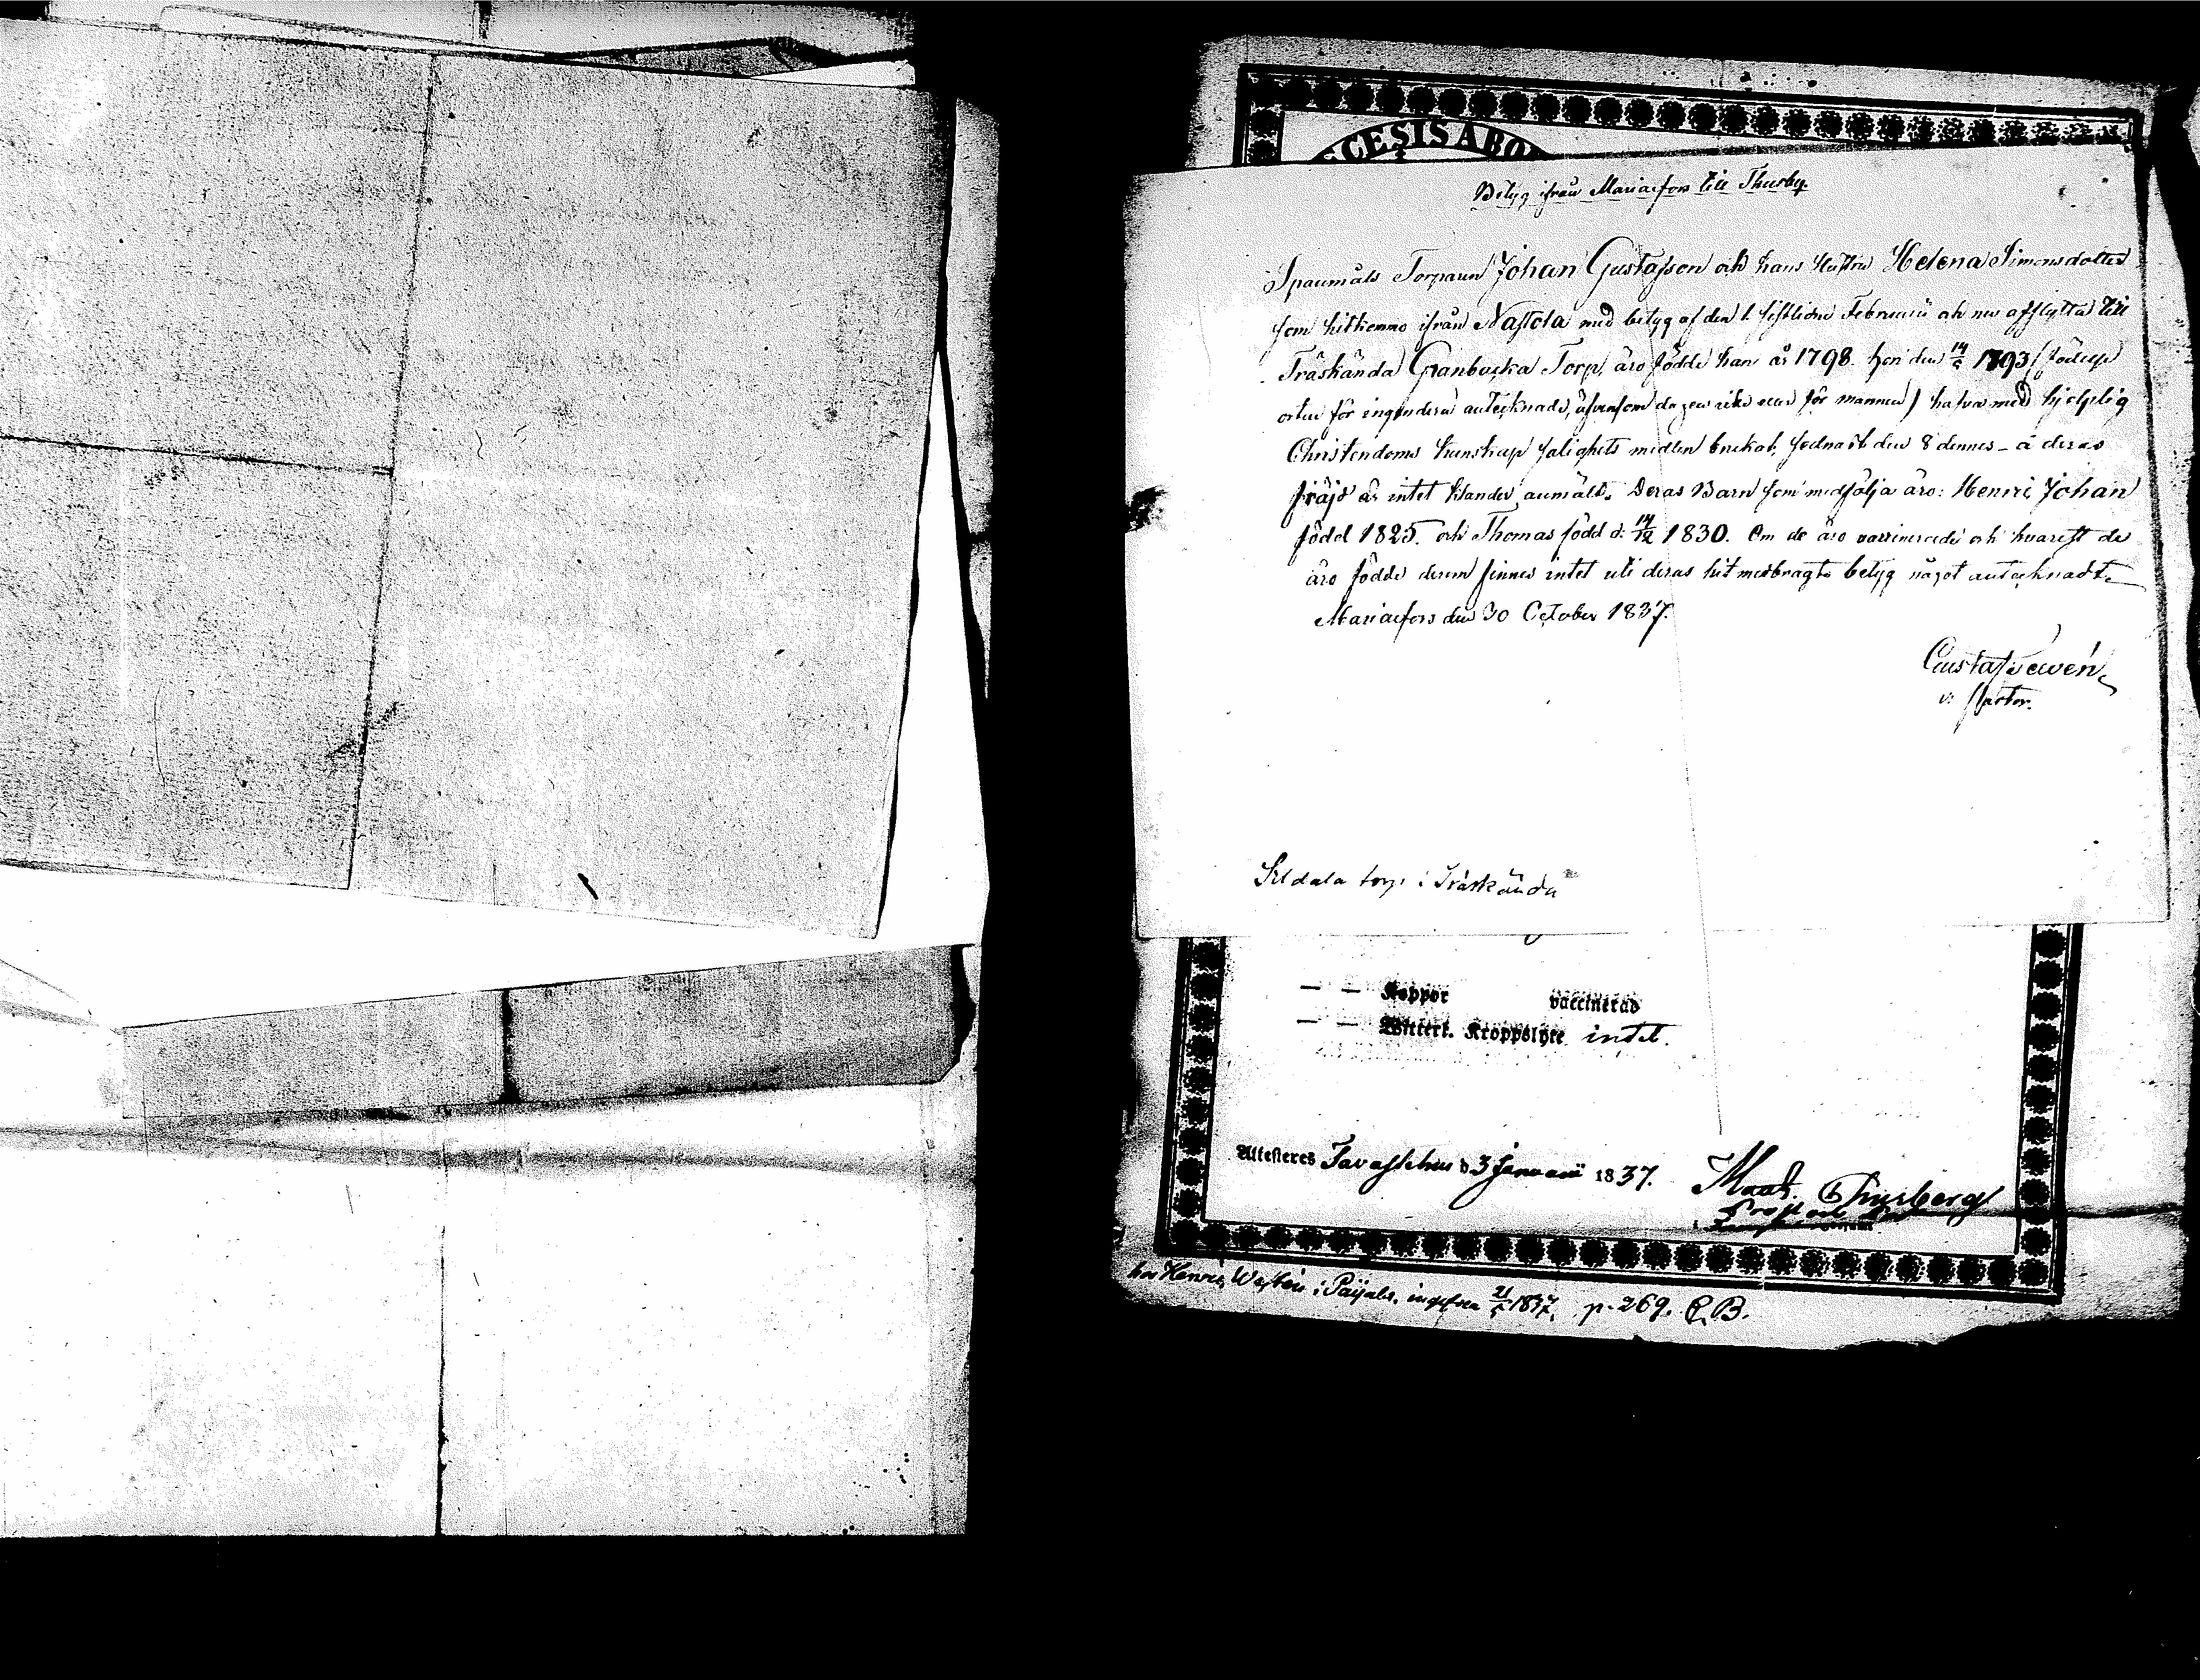 CESIS ABO
Betyg ifrån Mariæfors till Thusby.
Spannmåls Torparen Johan Gustafsson och hans Hustru Helena Simonsdotter
som hitkommo ifrån Nastola med betyg af den 1 sistledne Februarii och nu afflytta till
Träskända Granbacka Torp, äro födde han år 1798. hon den 14/5 1793 (födelse
orten för ingendera antecknad, äfvensom dagen icke eller för mannen) hafva med hjelplig
Christendoms kunskap salighets medlen brukat, sednast den 8 dennes – å deras
fräjd är intet klander anmäldt. Deras Barn som medfölja äro: Henric Johan
född 1825. och Thomas född d. 14/12 1830. Om de äro vaccinerade och hvarest de
äro födde derom finnes intet uti deras hit medbragte betyg något antecknadt.
Mariæfors den 30 October 1837.
Gustaf
v: Pastor.
torp i Träskända
— — Koppor vaccinerad
— — Kroppslyte intet.
Attesteres Tavastehus d 3 Januarii 1837.
Prost och
hos Henric i Paijala, 1837. p. 269. C. B.